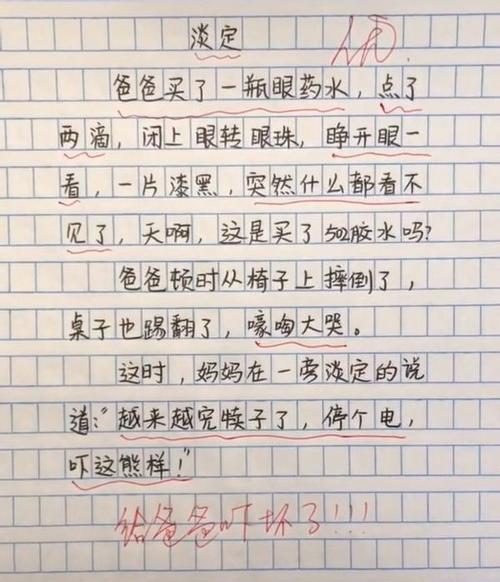 淡定
优
爸爸买了一瓶眼药水，点了
两滴，闭上眼转眼珠，睁开眼一
看，一片漆黑，突然什么都看不
见了，天啊，这是买了502胶水吗?
爸爸顿时从椅子上摔倒了，
桌子也踢翻了，嚎啕大哭。
这时，妈妈在一旁淡定的说
道:“越来越完犊子了，停个电，
吓这熊样!”
给爸爸吓坏了!!!